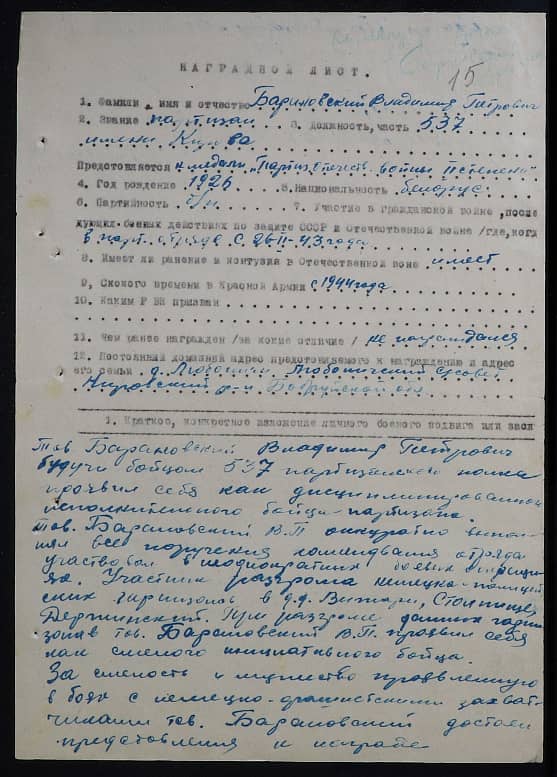 15
НАГРАДНОЙ ЛИСТ.
1. Фамили , имя и отчество Барановский Владимир Петрович
2. Звание партизан 3. Должность, часть 537
имени Кирова
Предстовляется к медали "Партиз. отечеств. войны II степени"
4. Год рождение 1926 5. Национальность белорус
6. Партийность б/п 7. Участие в Гражданской войне , после
дующих боевых действиях по защите СССР и Отечественной войне /где, когд
в парт. отряде с 26-11-43 года
8. Имеет ли ранение и контузия в Отечественной воне имеет
9, Скокого времени в Красной Армии с 1944 года
10. Каким Р ВК призван
11. Чем ранее награжден /за какие отличие / не награждался
12. Постоянный домашний адрес предстовляемого к награждению и адрес
его семьи д. Любоничи Любоничский с/совет
Кировский р-н Бобруйской обл.
1. Краткое, конкретное изложение личного боевого подвига или засл
Тов. Барановский Владимир Петрович
будучи бойцом 537 партизанского полка
проявил себя как дисциплинированный
исполнительного бойца-партизана.
Тов. Барановский В.П аккуратно выпол-
нял все поручения командования отряда
участвовал в неоднократных боевых операци-
ях. Участник разгрома немецко-полицей
ских гарнизонов в д.д.
При разгроме данных гарни
зонов тов. Барановский В.П. проявил себя
как смелого инициативного бойца.
За смелость и мужество проявленную
в боях с немецко-фашистскими захват-
чиками тов. Барановский достоен
представления к награде